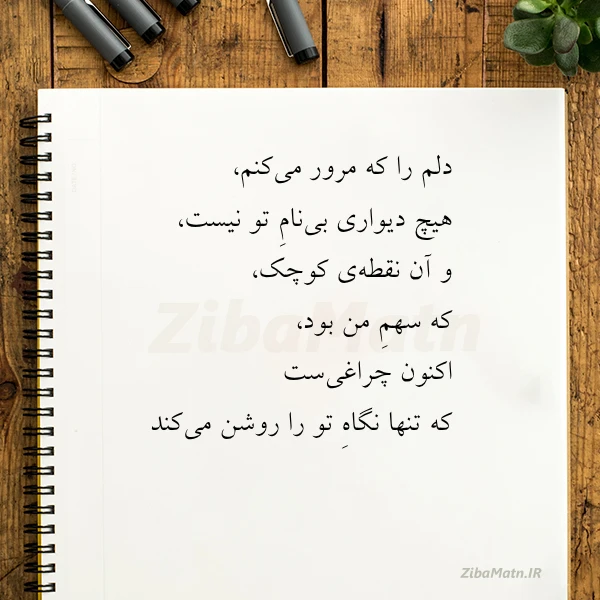 دلم را که مرور می‌کنم،
هیچ دیواری بی‌نامِ تو نیست،
و آن نقطه‌ی کوچک،
که سهمِ من بود،
اکنون چراغی‌ست
که تنها نگاهِ تو را روشن می‌کند
ZibaMatn
ZibaMatn.IR